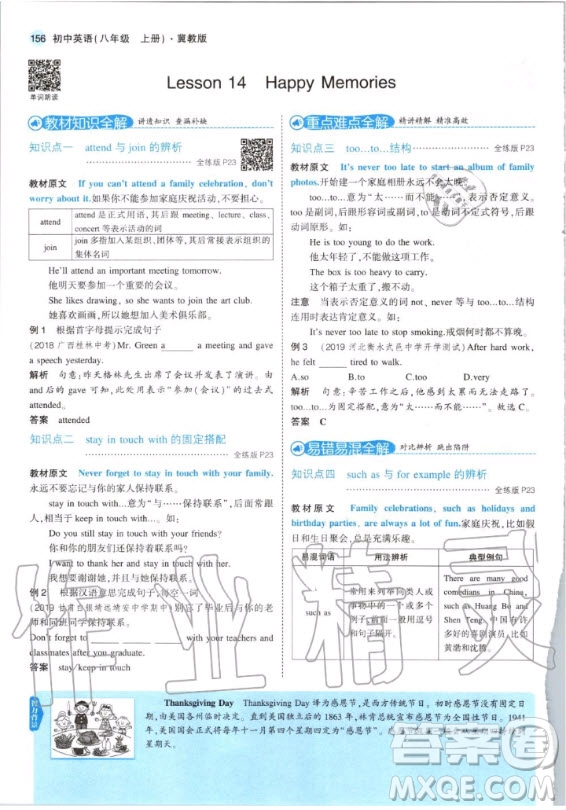 156 初中英语(八年级 上册)·冀教版
单词朗读
Lesson 14 Happy Memories
教材知识全解 讲透知识 查漏补缺
知识点一 attend 与 join 的辨析
全练版 P23
教材原文 If you can't attend a family celebration, don't
worry about it.如果你不能参加家庭庆祝活动,不要担心。
attend attend 是正式用语,其后跟 meeting, lecture, class,
concert 等表示活动的词
join join 多指加入某组织、团体等,其后常接表示组织的
集体名词
He'll attend an important meeting tomorrow.
他明天要参加一个重要的会议。
She likes drawing, so she wants to join the art club.
她喜欢画画,所以她想加入美术俱乐部。
例 1 根据首字母提示完成句子
(2018 广西桂林中考)Mr. Green a a meeting and gave
a speech yesterday.
解析 句意:昨天格林先生出席了会议并发表了演讲。由
and后的 gave 可知,此处用表示“参加(会议)”的过去式
attended。
答案 attended
知识点二 stay in touch with 的固定搭配
全练版 P23
教材原文 Never forget to stay in touch with your family.
永远不要忘记与你的家人保持联系。
stay in touch with...意为“与……保持联系”,后面常跟
人,相当于 keep in touch with...。
Do you still stay in touch with your friends?
你和你的朋友们还保持联系吗?
I want to thank her and stay in touch with her.
我想要谢谢她,并且与她保持联系。
例 2 根据汉语意思完成句子,每空一词
别忘了毕业后与你的老
师和同班同学保持联系。
Don't forget to with your teachers and
classmates after you graduate.
答案 stay in touch
重点难点全解 精讲精解 精准高效
知识点三 too...to...结构
全练版 P23
教材原文 It's never too late to start an album of family
photos.开始建一个家庭相册永远不要太晚。
too...to...意为“太……而不能……”,表示否定意义。
too 是副词,后跟形容词或副词;to 是动词不定式符号,后跟
动词原形。如:
He is too young to do the work.
他太年轻了,不能做这项工作。
The box is too heavy to carry.
这个箱子太重了,搬不动。
注意 当表示否定意义的词 not、never 等与 too...to...结构
连用时表达肯定意义。如:
It's never too late to stop smoking.戒烟何时都不算晚。
例 3 (2019 河北衡水武邑中学开学测试)After hard work,
he felt tired to walk.
A.so B.to C.too D.very
解析 句意:辛苦工作之后,他感到太累而无法走路了。
too...to...为固定结构,意为“太……而不能……”。故选 C。
答案 C
易错易混全解 对比辨析 跳出陷阱
知识点四 such as 与 for example 的辨析
全练版 P23
教材原文 Family celebrations, such as holidays and
birthday parties, are always a lot of fun.家庭庆祝,比如假
日和生日聚会,总是充满乐趣。
易混词语 用法辨析 典型例句
such as 用来列举同类人或
事物中的一个或多个
例子,前面一般用逗号
和句子隔开。
There are many good
comedians in China,
such as Huang Bo and
Shen Teng. 中国有许
多好的喜剧演员,比如
黄渤和沈腾。
智力背景
Thanksgiving Day Thanksgiving Day 译为感恩节,是西方传统节日。初时感恩节没有固定日期,
由美国各州临时决定。直到美国独立后的 1863 年,林肯总统宣布感恩节为全国性节日。1941
年,美国国会正式将每年十一月第四个星期四定为“感恩节”。
星期天。
作业精灵
答案圈
MXQE.COM